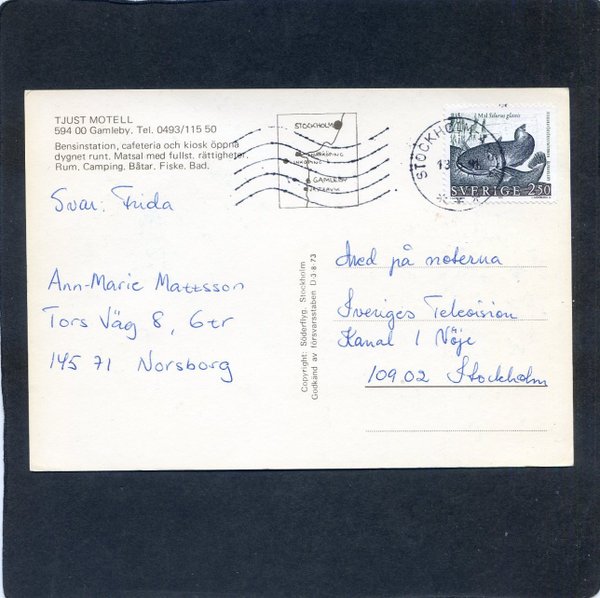 TJUST MOTELL
594 00 Gamleby. Tel. 0493/115 50
Bensinstation, cafeteria och kiosk öppna
dygnet runt. Matsal med fullst. rättigheter.
Rum. Camping. Båtar. Fiske. Bad.
STOCKHOLM
NORRKÖPING
LINKÖPING
GAMLEBY
VÄSTERVIK
STOCKHOLM
13
Mal Silurus glanis
SVERIGE 250
Svar: Frida
Ann-Marie Mattsson
Tors Väg 8, 6tr
145 71 Norsborg
Copyright: Söderflyg, Stockholm
Godkänd av försvarsstaben D 3-8-73
Med på noterna
Sveriges Television
Kanal 1 Nöje
109 02 Stockholm